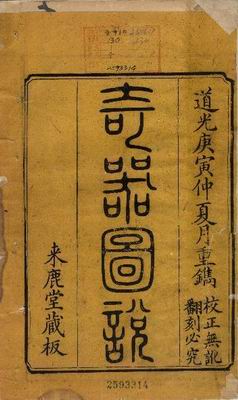 道光庚寅仲夏月重鐫
校正無訛
翻刻必究
奇器圖說
来鹿堂藏板
2593314